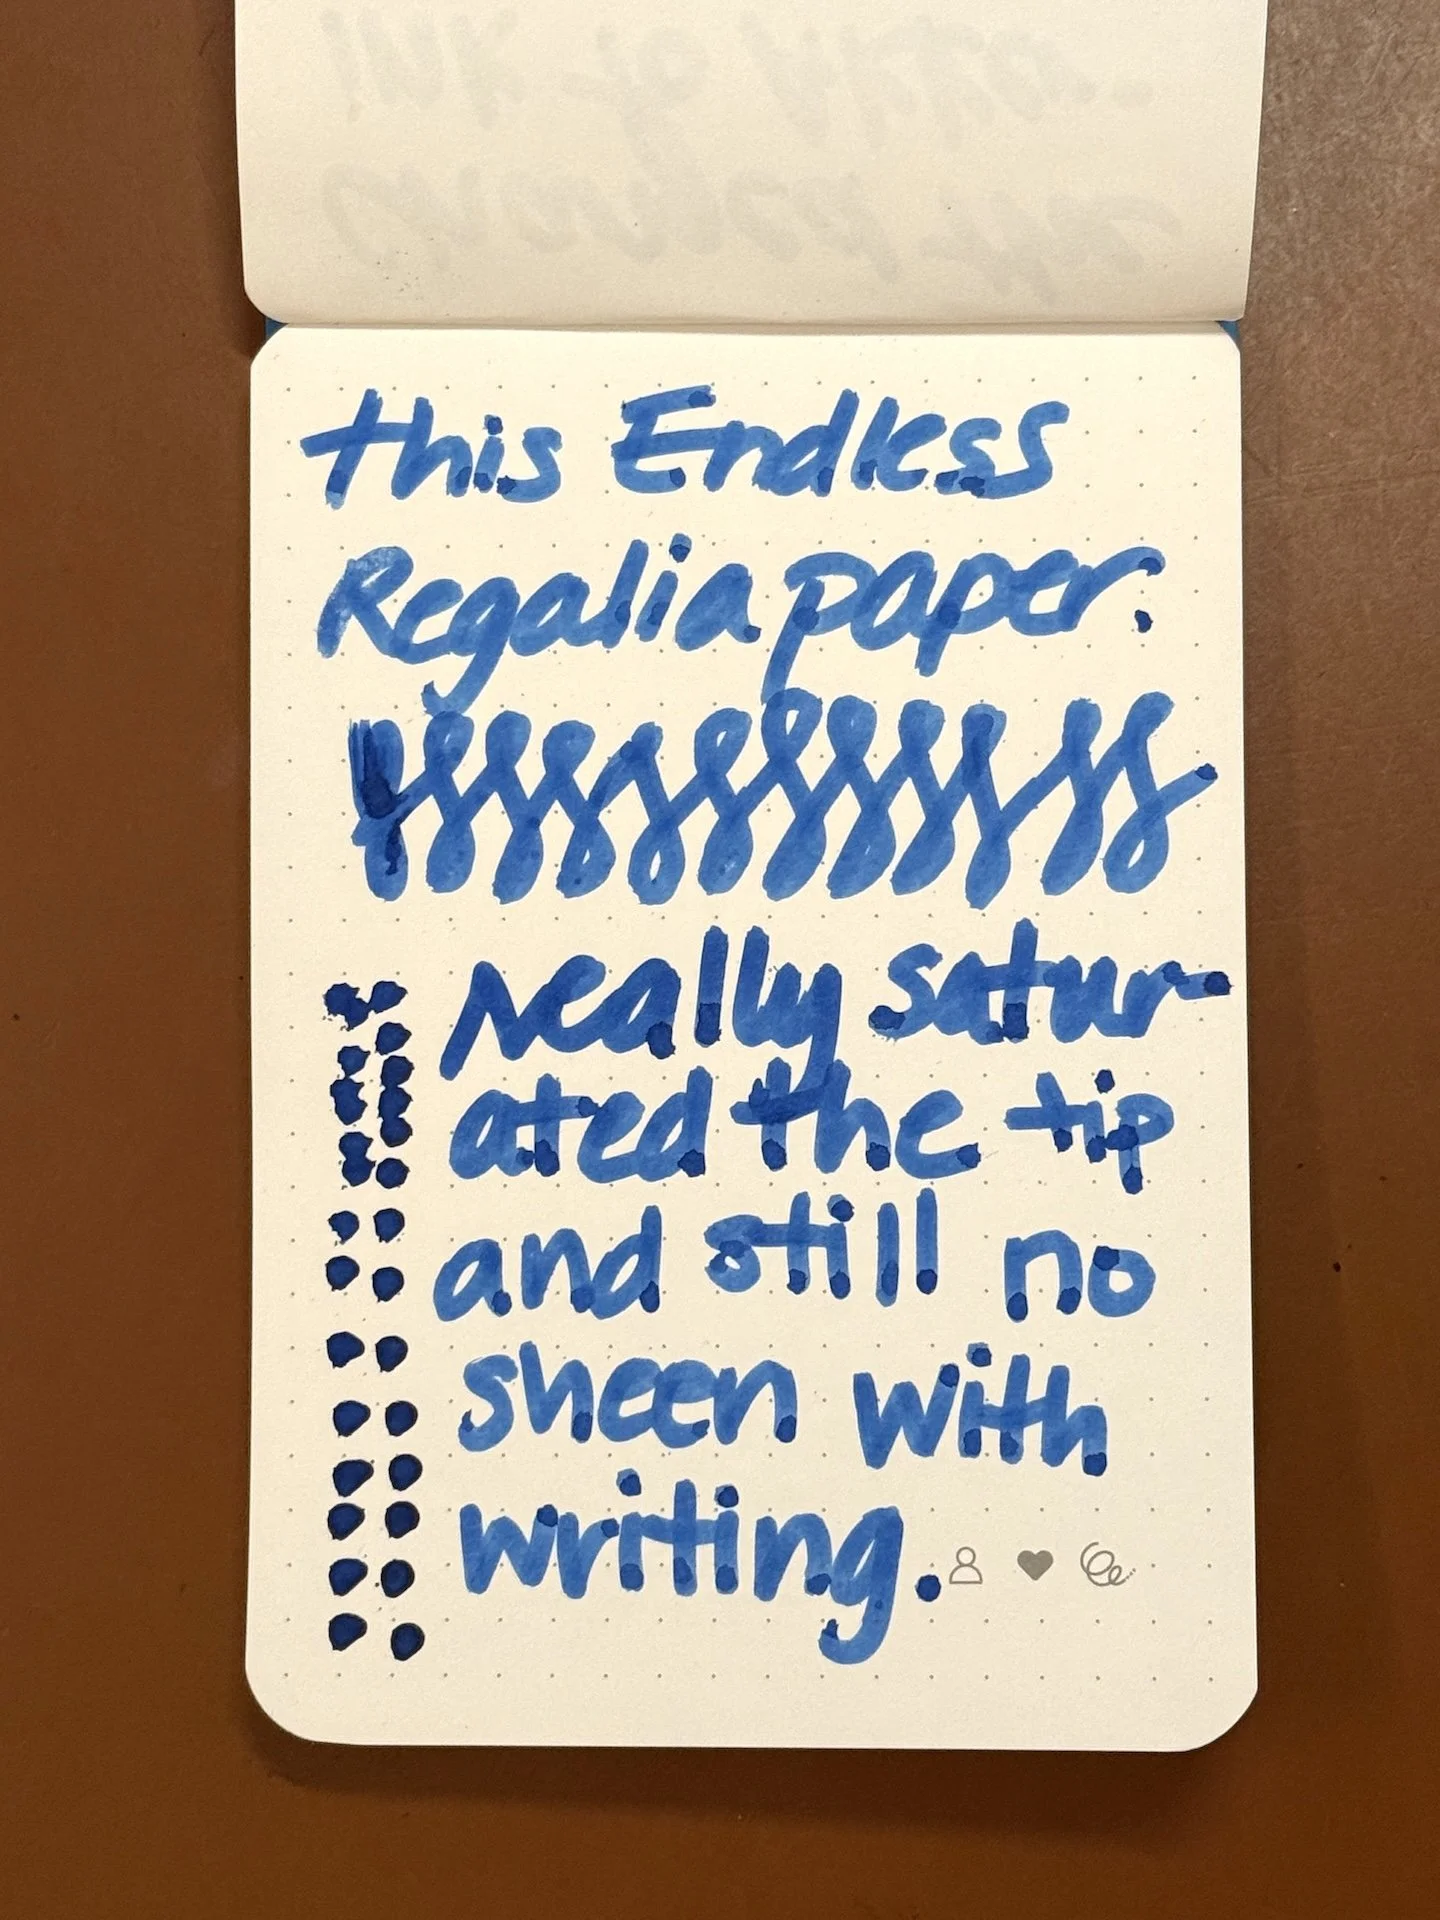 this Endless
Regalia paper.
really satur-
ated the tip
and still no
sheen with
writing.